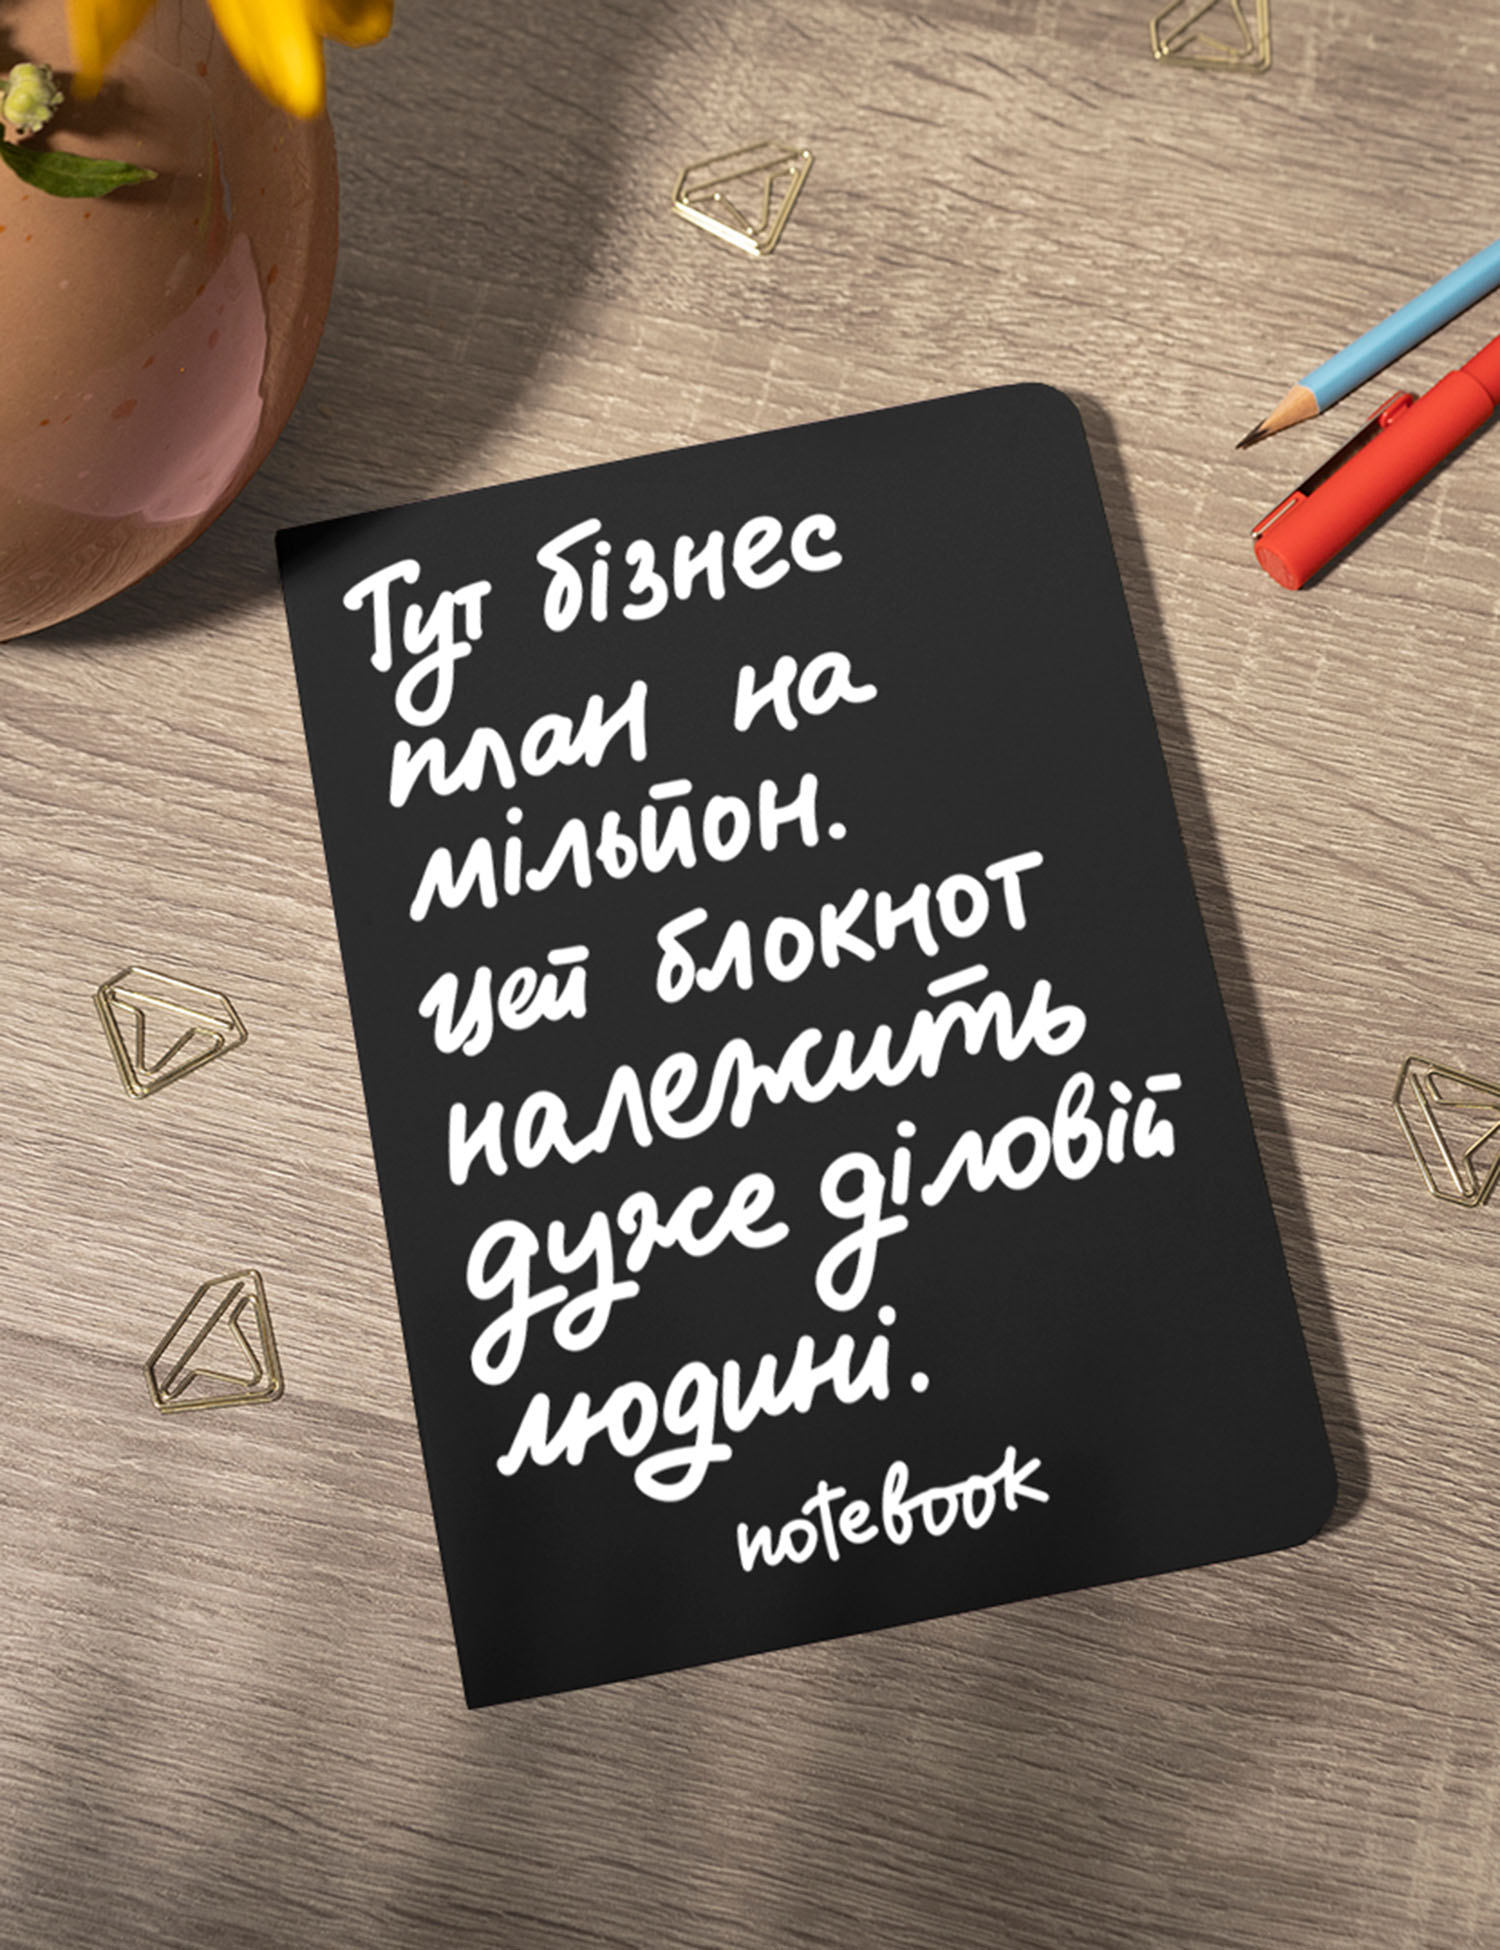 Тут бізнес
план на
мільйон.
Цей блокнот
належить
дуже діловій
людині.
notebook